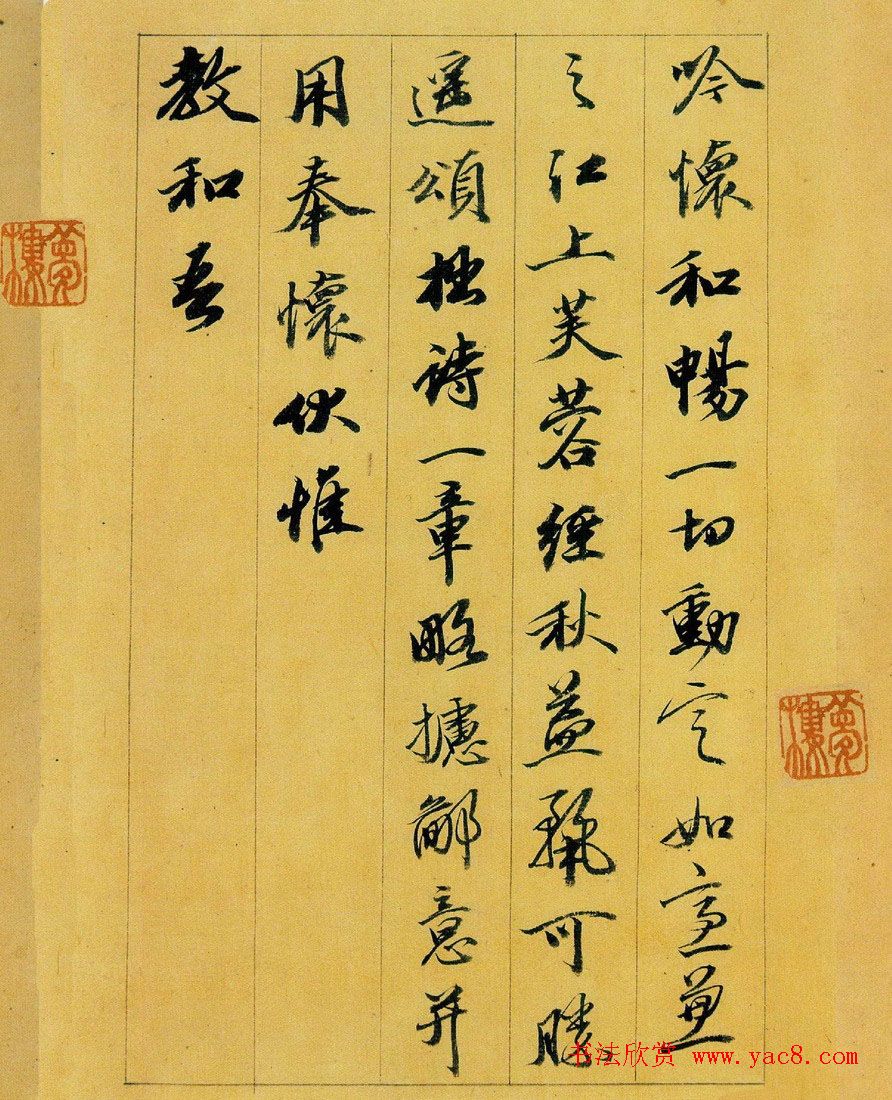 吟懷和暢一切動定如宜兼
之江上芙蓉經秋益艷可勝
遥頌拙詩一章略攄鄙意并
用奉懷伏惟
教和吾
夢樓
夢樓
书法欣赏 www.yac8.com